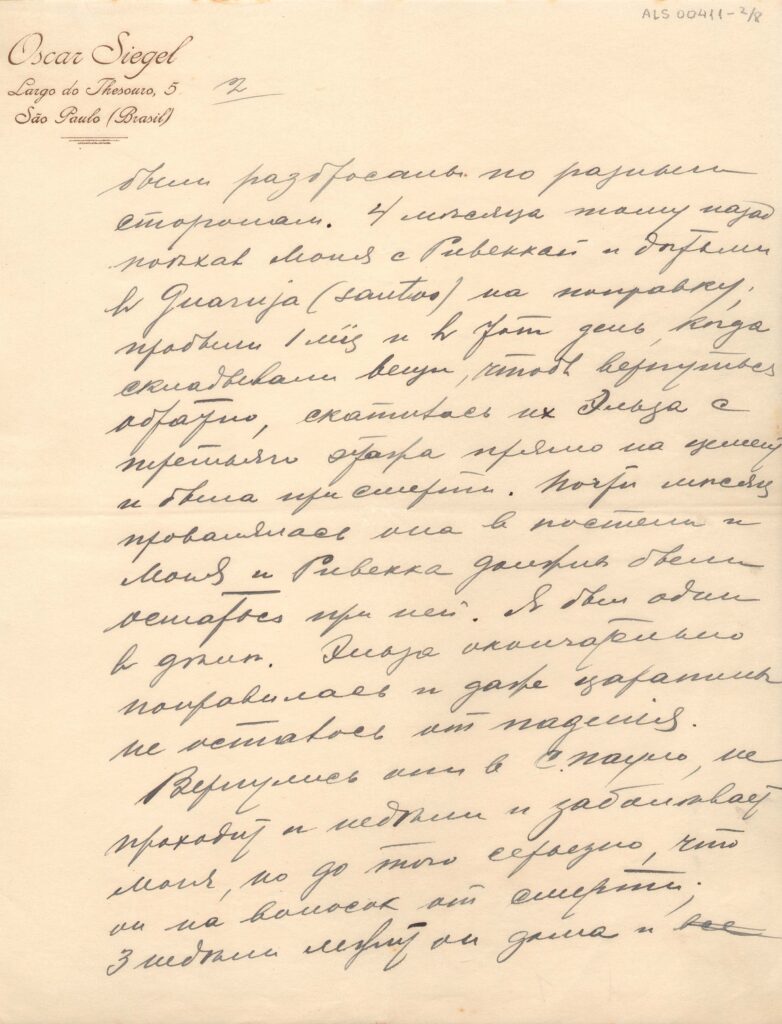 ALS 00411-2/8
Oscar Siegel
Largo do Thesouro, 5
São Paulo (Brasil)
2
были разбросаны по разным
сторонам. 4 мѣсяца тому назад
поѣхав Моня с Ривеккой и дѣтьми
в Guaruja (Santos) на поправку,
пробыли 1 м-ц и в тот день, когда
складывали вещи, чтобы вернуться
обратно, скатилась их Эльза с
третьяго этажа прямо на цемент
и была при смерти. Почти мѣсяц
провалялась она в постели и
Моня и Ривекка должны были
остаться при ней. Я был один
в доме. Эльза окончательно
поправилась и даже царапины
не осталось от падения.
Вернулись они в С. Пауло, не
проходит и недѣли и заболѣвает
Моня, но до того серьезно, что
он на волосок от смерти;
3 недѣли лежит он дома и все